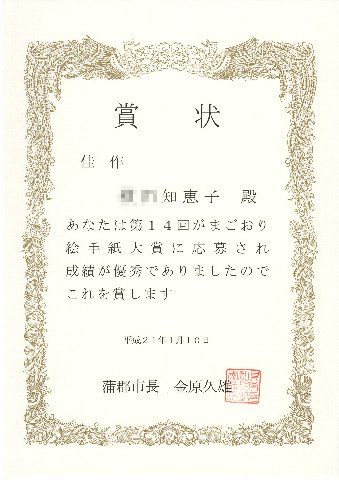 賞状
佳作
知恵子 殿
あなたは第14回がまごおり
絵手紙大賞に応募され
成績が優秀でありましたので
これを賞します
平成21年1月10日
蒲郡市長 金原久雄